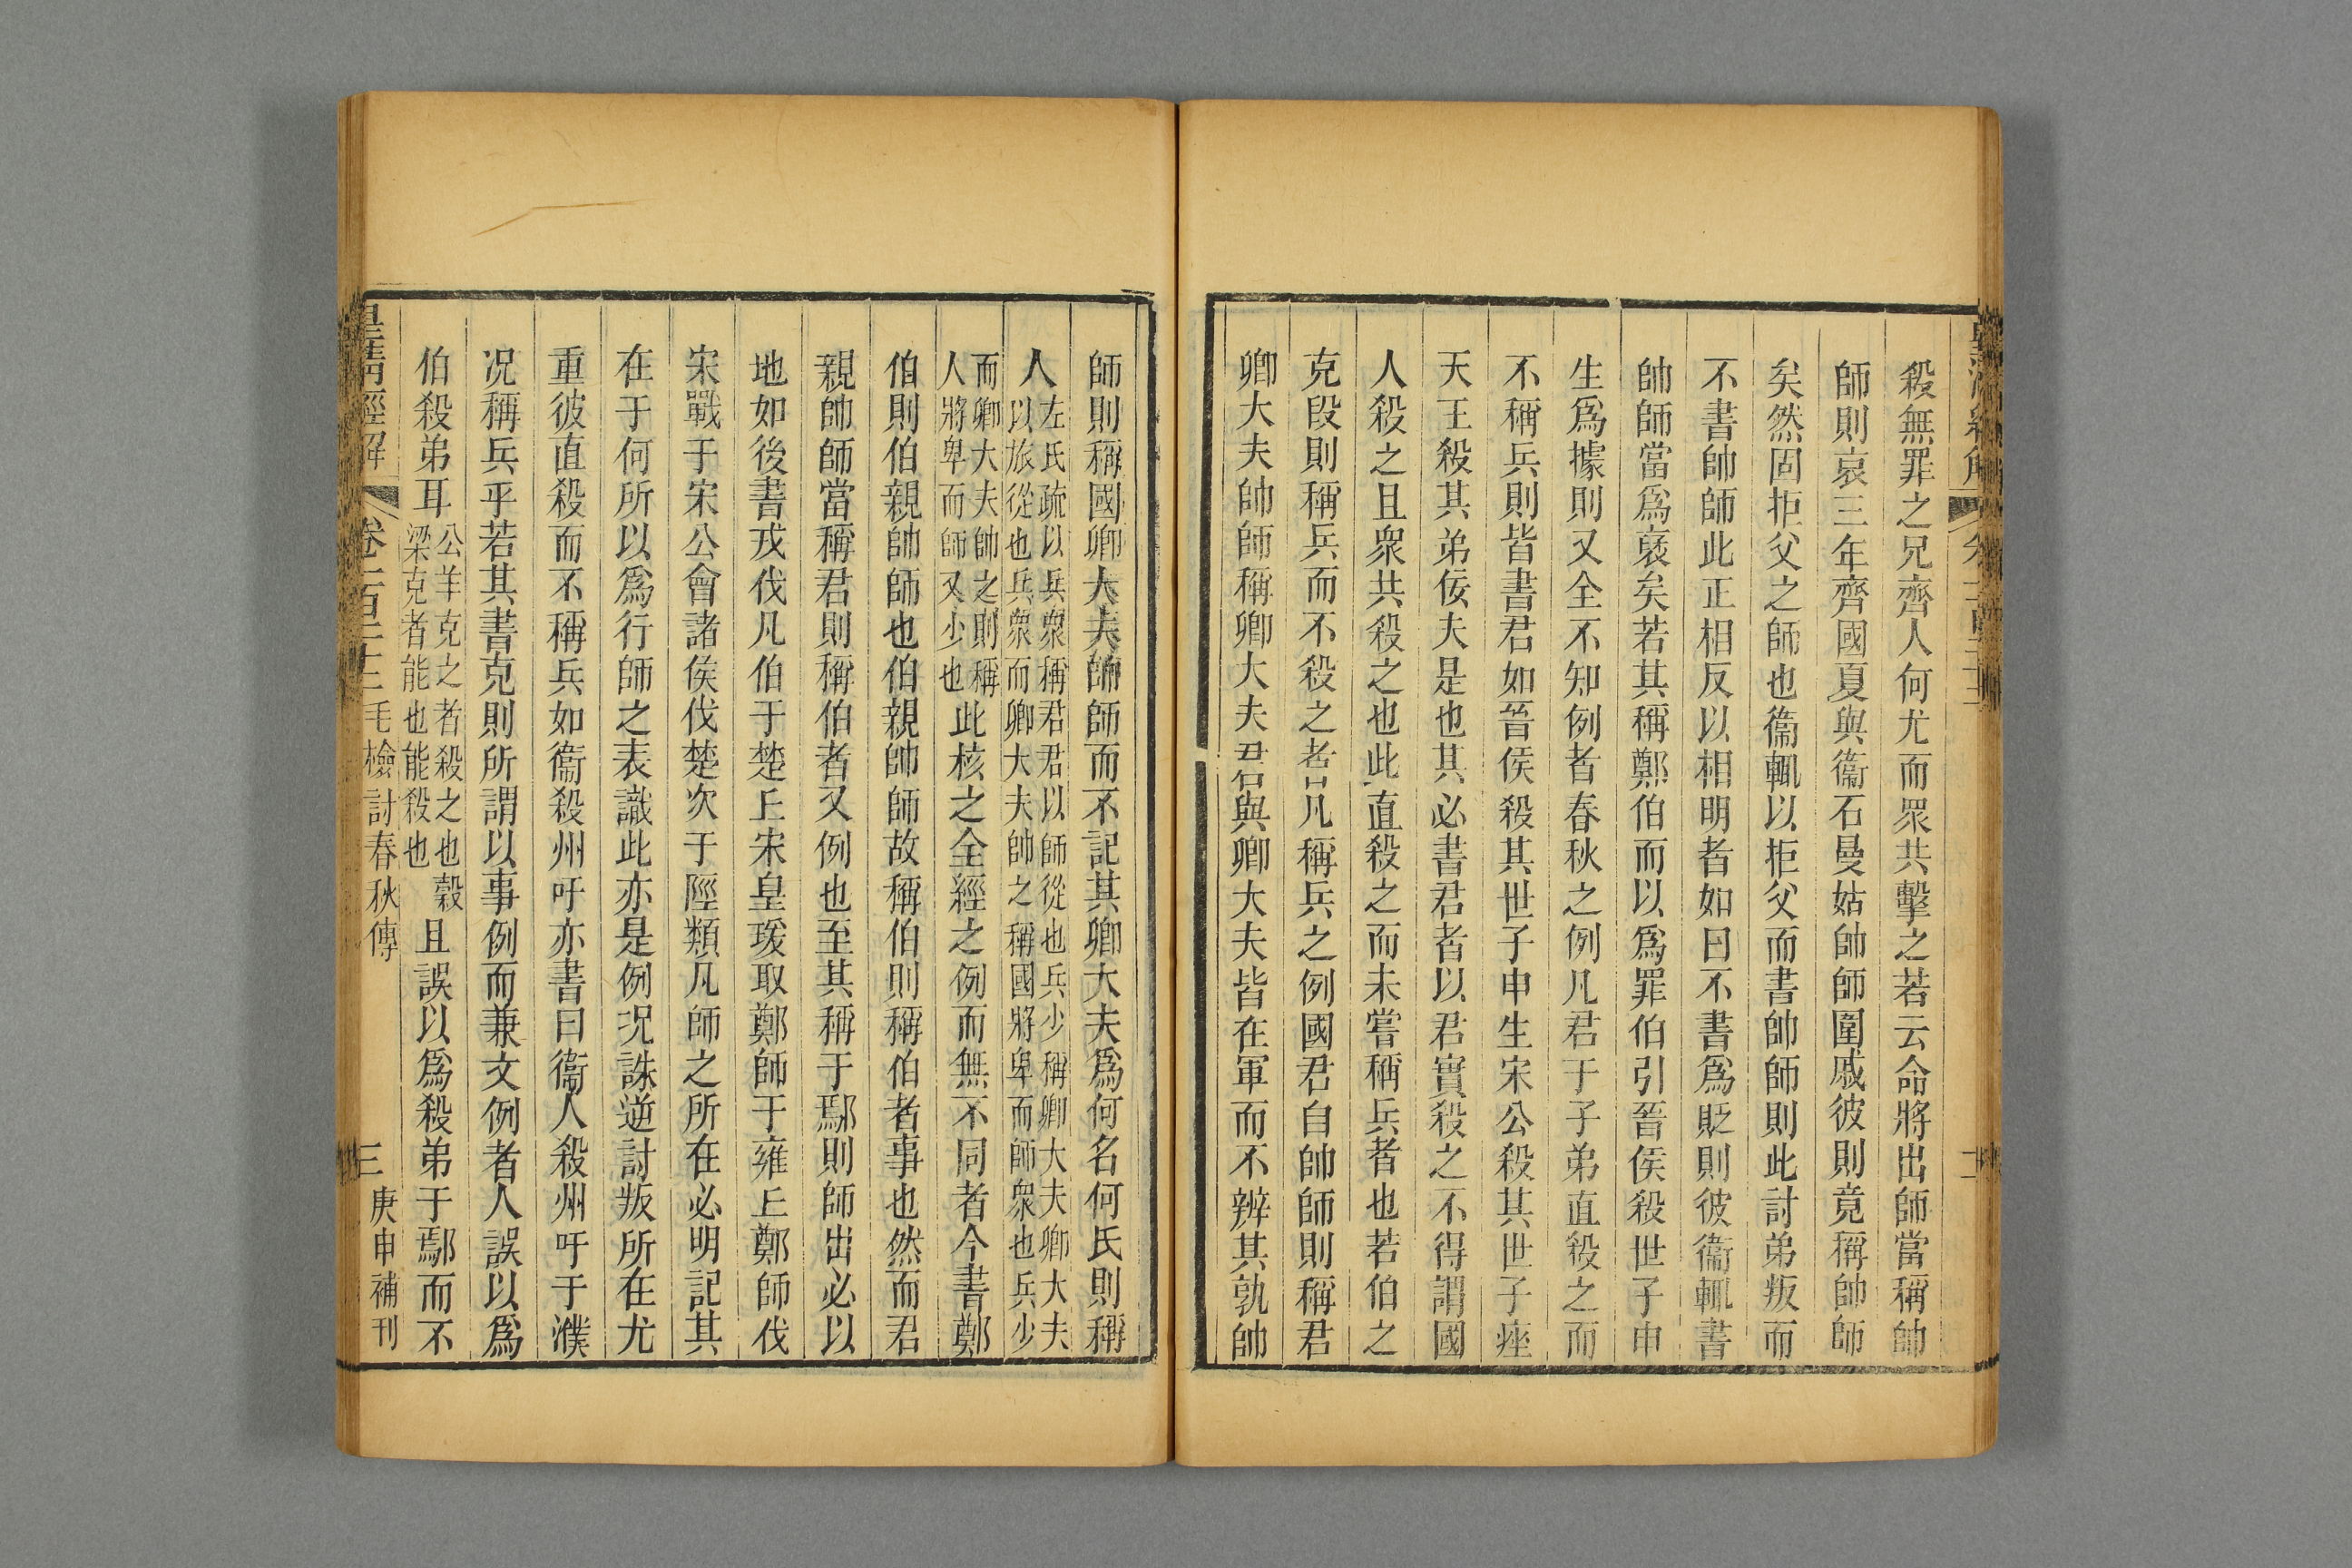 殺無罪之兄齊人何尤而眾共擊之若云命將出師當稱帥
師則哀三年齊國夏與衞石曼姑帥師圍戚彼則竟稱帥師
矣然固拒父之師也衞輒以拒父而書帥師則此討弟叛而
不書帥師此正相反以相明者如曰不書爲貶則彼衞輒書
帥師當爲襃矣若其稱鄭伯而以爲罪伯引晉侯殺世子申
生爲據則又全不知例者春秋之例凡君于子弟直殺之而
不稱兵則皆書君如晉侯殺其世子申生宋公殺其世子痤
天王殺其弟佞夫是也其必書君者以君實殺之不得謂國
人殺之且衆共殺之也此直殺之而未嘗稱兵者也若伯之
克段則稱兵而不殺之者凡稱兵之例國君自帥師則稱君
卿大夫帥師稱卿大夫君與卿大夫皆在軍而不辨其孰帥
師則稱國卿大夫帥師而不記其卿大夫爲何名何氏則稱
人左氏疏以兵衆稱君君以師從也兵少稱卿大夫卿大夫
以旅從也兵衆而卿大夫帥之稱國將卑而師衆也兵少
而卿大夫帥之則稱
人將卑而師又少也此核之全經之例而無不同者今書鄭
伯則伯親帥師也伯親帥師故稱伯則稱伯者事也然而君
親帥師當稱君則稱伯者又例也至其稱于鄢則師出必以
地如後書戎伐凡伯于楚丘宋皇瑗取鄭師于雍丘鄭師伐
宋戰于宋公會諸侯伐楚次于陘類凡師之所在必明記其
在于何所以爲行師之表識此亦是例況誅逆討叛所在尤
重彼直殺而不稱兵如衞殺州吁亦書曰衞人殺州吁于濮
况稱兵乎若其書克則所謂以事例而兼文例者人誤以爲
伯殺弟耳公羊克之者殺之也穀
梁克者能也能殺也且誤以爲殺弟于鄢而不
皇清經解 卷一百二十三 毛檢討春秋傳 三 庚申補刊